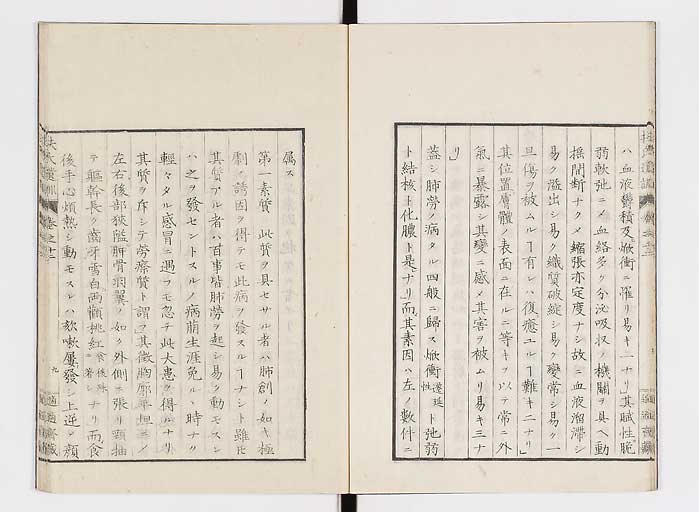 ハ血液鬱積及ヒ焮衝ニ罹リ易キ二ナリ其賦性脆
弱軟弛ニメ血絡多ク分泌吸収ノ機關ヲ具ヘ動
揺間断ナクメ縮張亦定度ナシ故ニ血液溜滞シ
易ク溢出シ易ク織質破綻シ易ク變常シ易ク一
旦傷ヲ被ムルヿ有レハ復癒ユルヿ難キ二ナリ
其位置膚體ノ表面ニ在ルニ等キヲ以テ常ニ外
氣ニ暴露シ其變ニ感メ其害ヲ被ムリ易キ三ナ
リ
蓋シ肺勞ノ病タル四般ニ歸ス焮衝性遷延ト弛弱
ト結核ト化膿ト是ナリ而メ其素因ハ左ノ數件ニ
属ス
第一素質 此質ヲ具セサル者ハ肺創ノ如キ極
劇ノ誘因ヲ得テモ此病ヲ發スルヿナシト雖𪜈
其質アル者ハ百事皆肺勞ヲ起シ易ク動モスレ
ハ之ヲ發セントスルノ病萠生涯免レス時ナク
輕々タル感冒ニ遇フモ忽チ此大患ヲ得ルナリ
其質ヲ斥シテ勞瘵質ト謂フ其徴胸廓
左右後部狹隘胛骨羽翼ノ如ク外側ニ張リ頸抽
テ軀幹長ク齒牙雪白両顴桃紅食後殊ニ著シナリ而食
後手心煩熱シ動モスレハ欬嗽屢發シ上逆シ頬
扶氏遺訓 卷之十二
九
適適齋藏